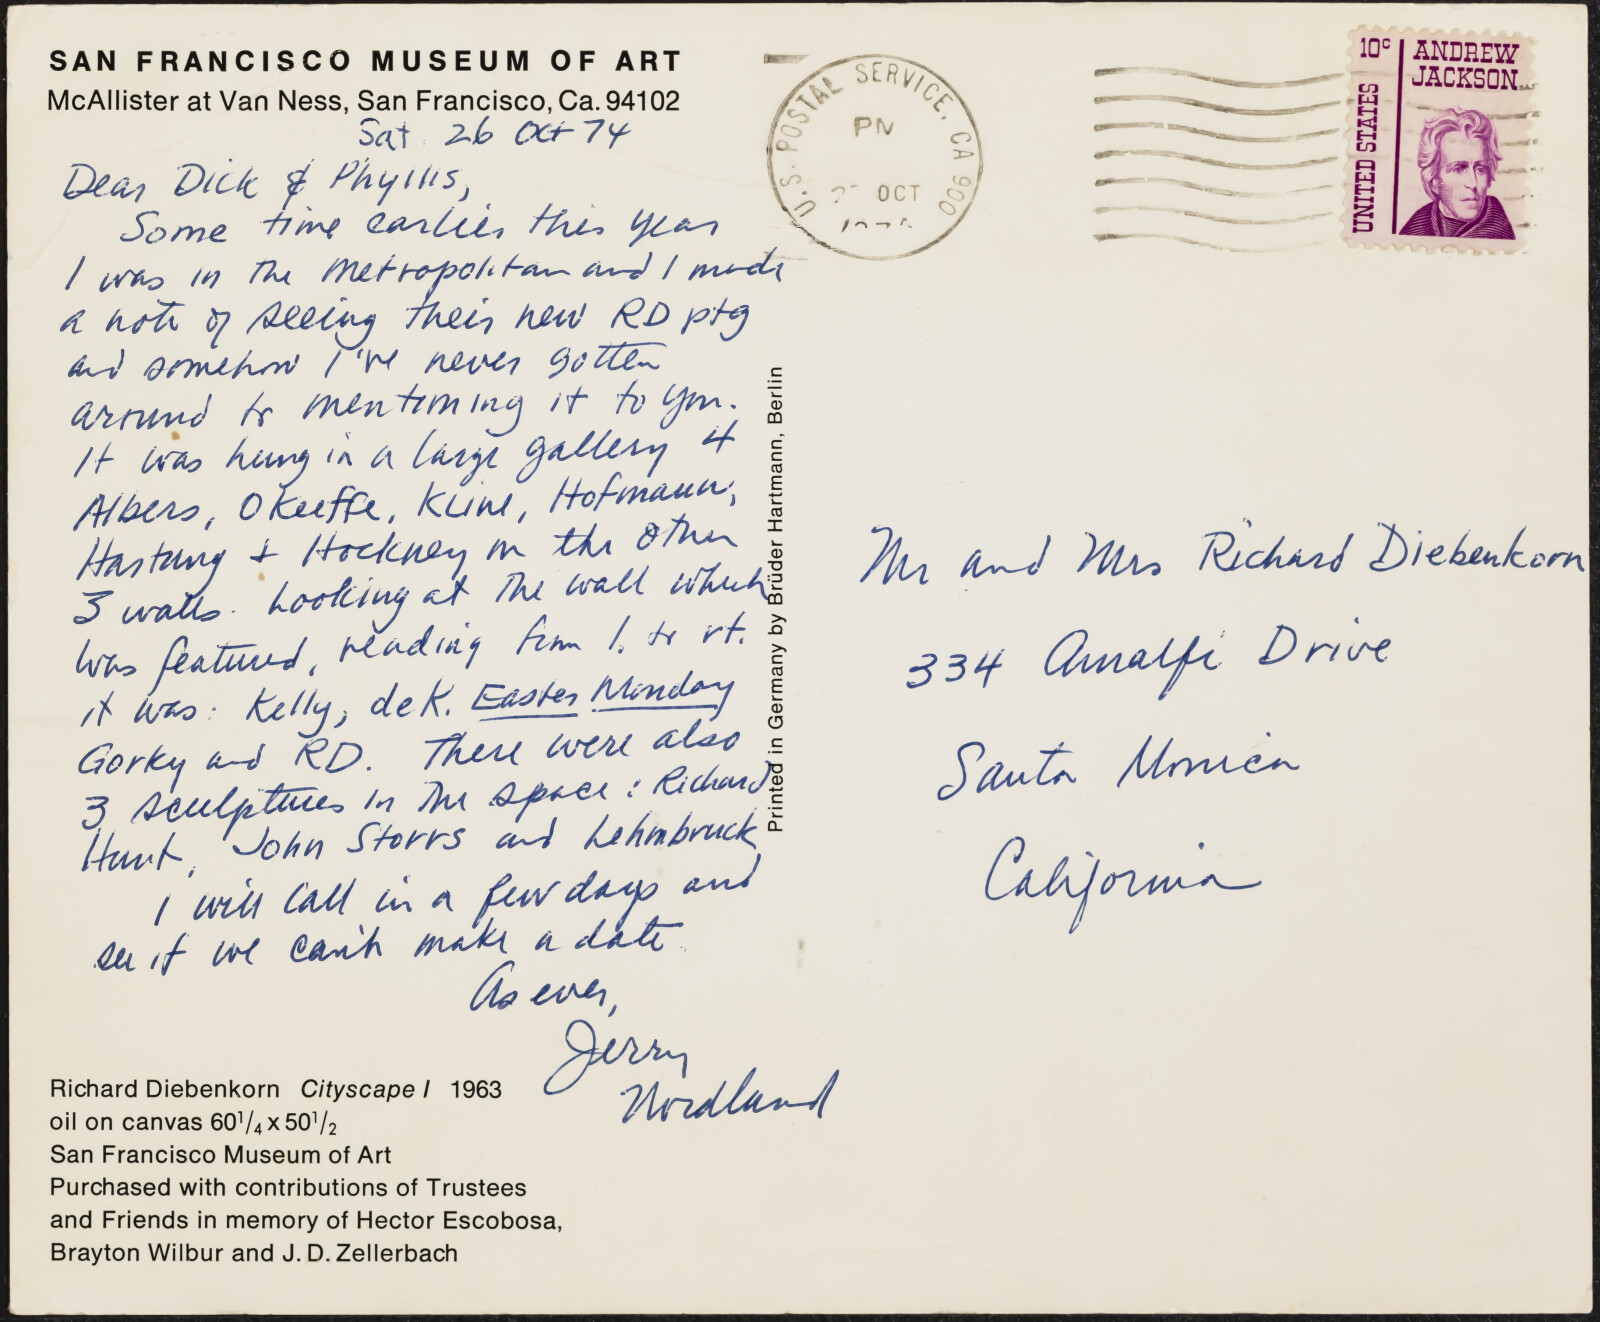 SAN FRANCISCO MUSEUM OF ART
McAllister at Van Ness, San Francisco, Ca. 94102
Sat. 26 Oct 74
Dear Dick & Phyllis,
Some time earlier this year
I was in the Metropolitan and I made
a note of seeing their new RD ptg
and somehow I've never gotten
around to mentioning it to you.
It was hung in a large gallery
Albers, OKeeffe, Kline, Hofmann,
Hartung & Hockney on the other
3 walls. Looking at the wall which
was featured, reading from l. to rt.
it was: Kelly, de K. Easter Monday
Gorky and RD. There were also
3 sculptures in the space: Richard
Hunt, John Storrs and Lehmbruck
I will call in a few days and
see if we can't make a date.
As ever,
Jerry
Nordland
Richard Diebenkorn Cityscape I 1963
oil on canvas 60¹/₄ x 50¹/₂
San Francisco Museum of Art
Purchased with contributions of Trustees
and Friends in memory of Hector Escobosa,
Brayton Wilbur and J. D. Zellerbach
Printed in Germany by Brüder Hartmann, Berlin
U.S. POSTAL SERVICE, CA 900
PM
OCT
10c
ANDREW
JACKSON
UNITED STATES
Mr and Mrs Richard Diebenkorn
334 Amalfi Drive
Santa Monica
California